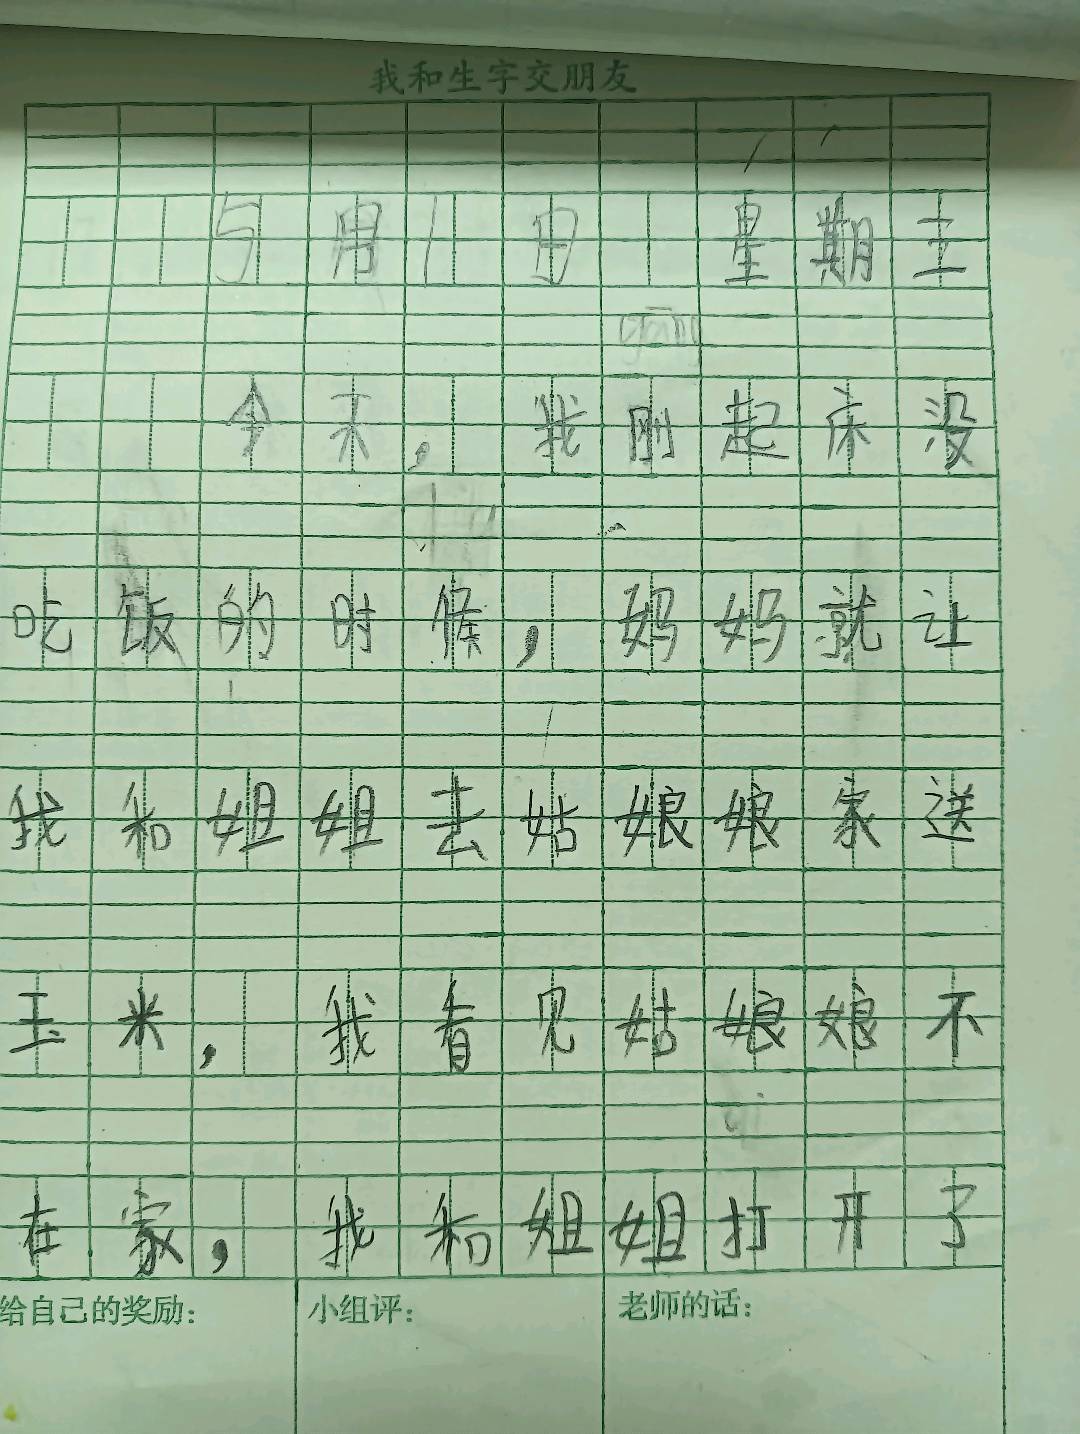 我和生字交朋友
5月1日 星期三
今天，我刚起床没
吃饭的时候，妈妈就让
我和姐姐去姑娘娘家送
玉米，我看见姑娘娘不
在家，我和姐姐打开了
给自己的奖励： 小组评： 老师的话：